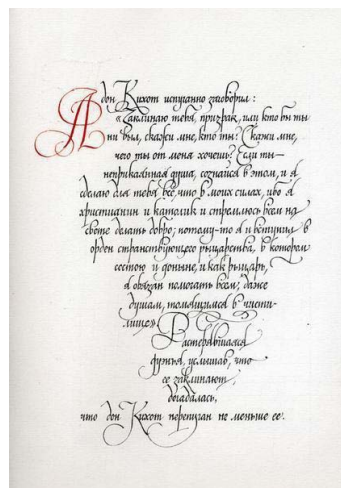 А дон Кихот испуганно заговорил:
«Заклинаю тебя, призрак, или кто бы ты
ни был, скажи мне, кто ты? Скажи мне,
чего ты от меня хочешь? Если ты —
неприкаянная душа, сознайся в этом, и я
сделаю для тебя всё, что в моих силах, ибо я
христианин и католик и стремлюсь всем на
свете делать добро; потому-то я и вступил в
орден странствующего рыцарства, в котором
состою и доныне, и как рыцарь,
я обязан помогать всем; даже
душам, томящимся в чисти-
лище».
Растерявшаяся
дуэнья, услышав, что
ее заклинают,
догадалась,
что дон Кихот перепуган не меньше ее.